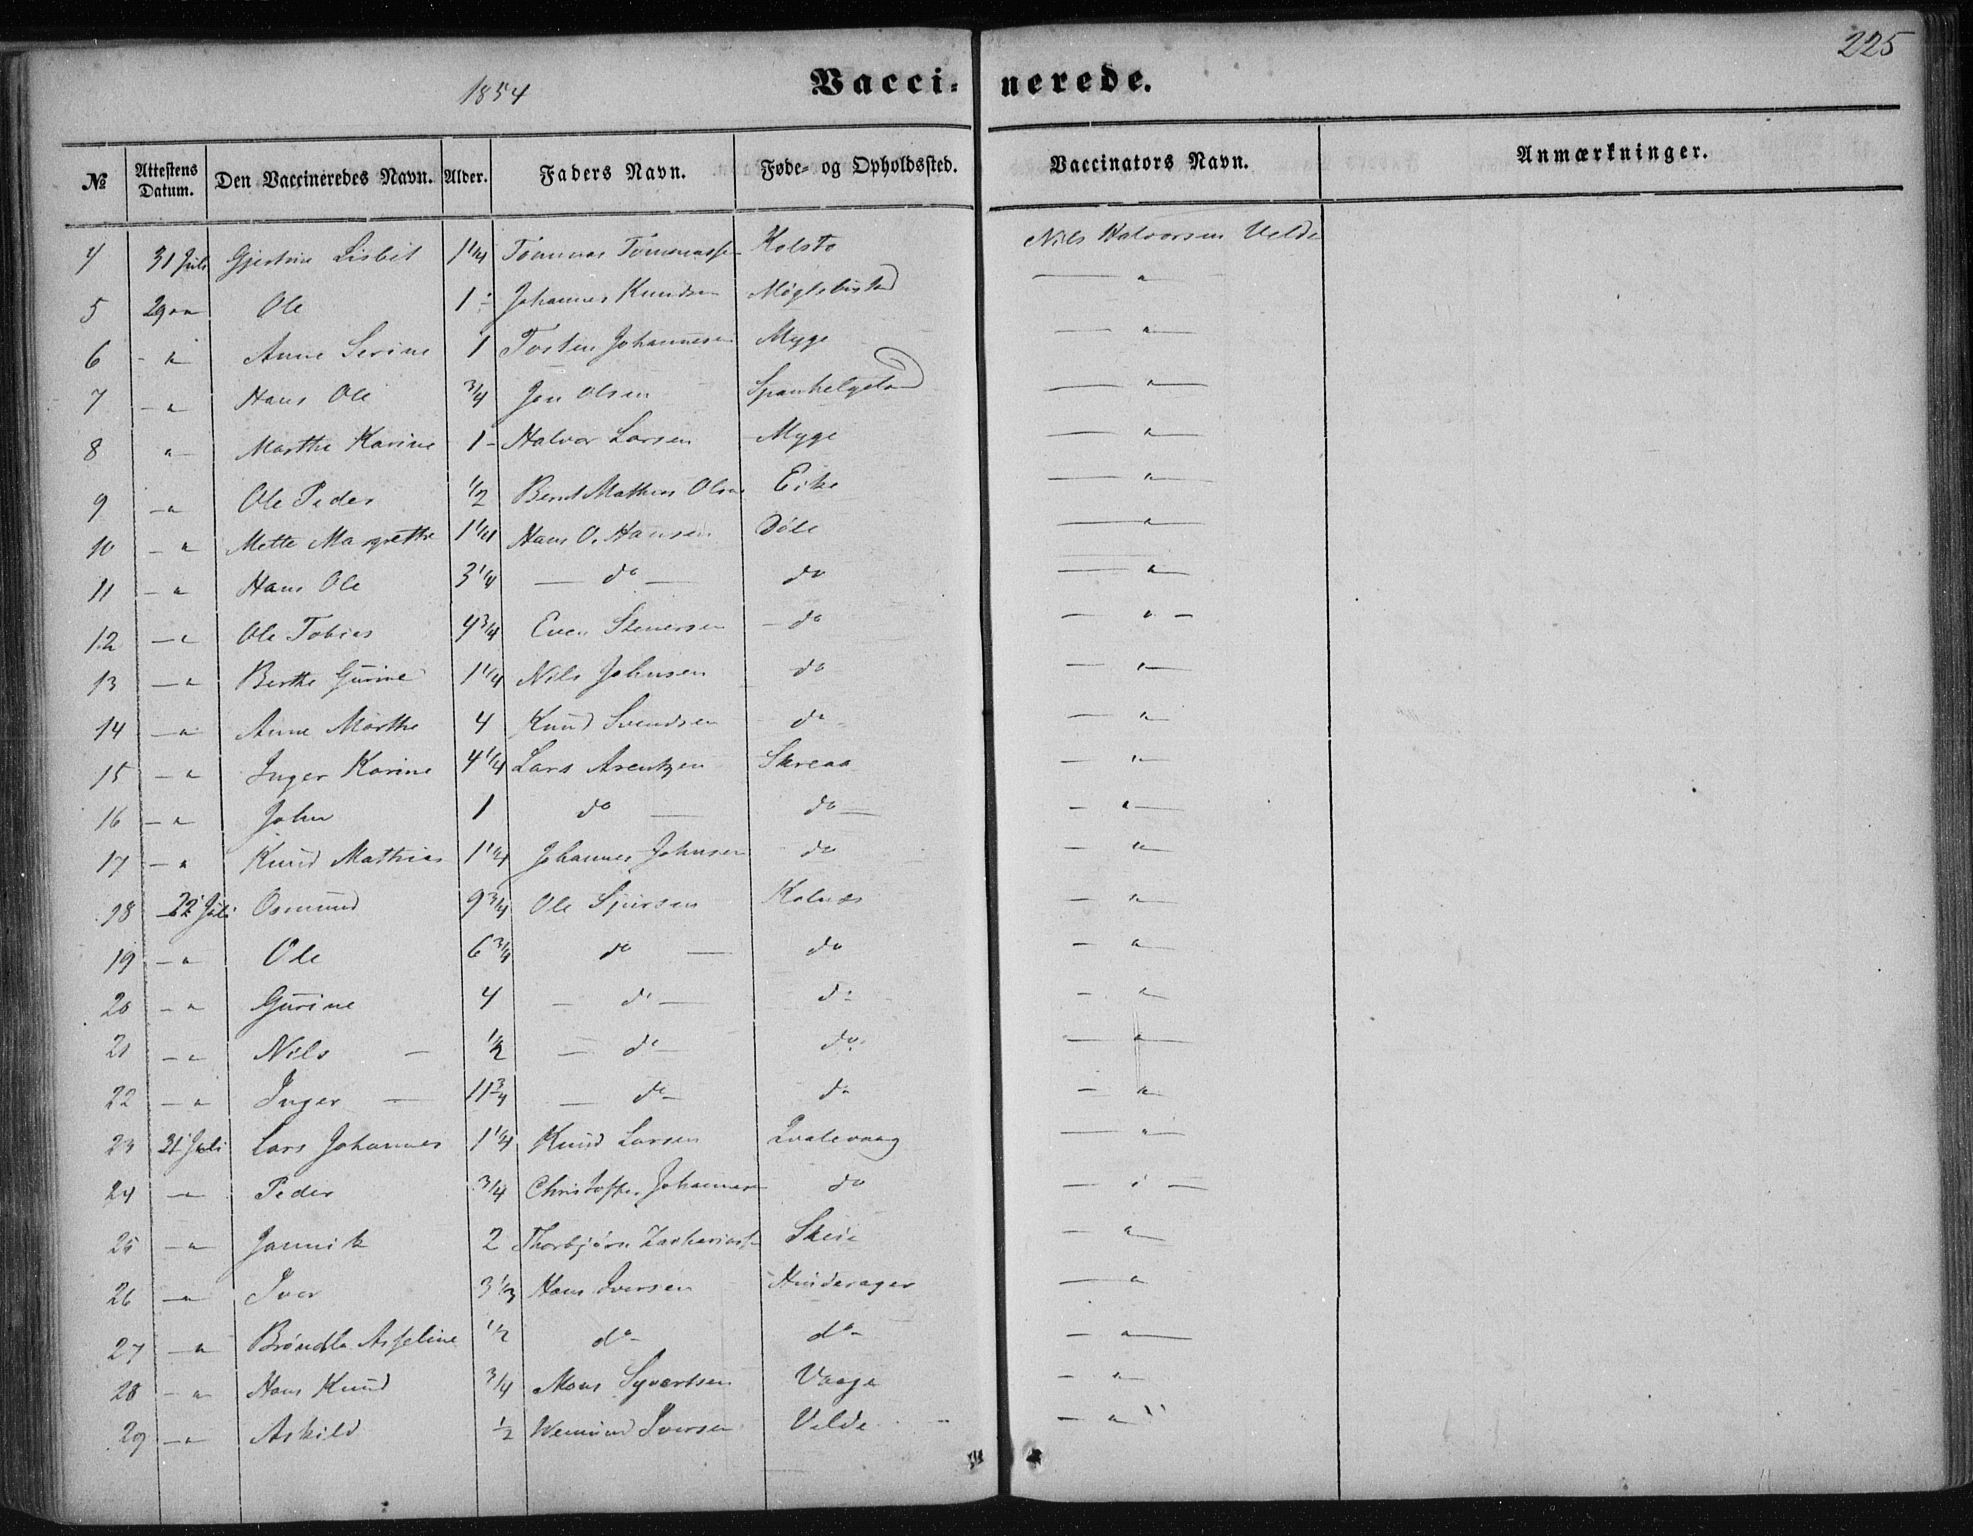 225
1854 Vaccinerede.
№ Attestens Datum. Den Vaccineredes Navn. Alder. Faders Navn. Føde- og Opholdssted. Vaccinators Navn. Anmærkninger.
4 31 Juli Gjertine Lisbet 1 1/4 Tønnnes Tønnessen Kolstø Nils Halvorsen Velde
5 29 " Ole 1 - Johannes Knudsen " 
6 - " Anne Serine 1 Tosten Johannesen Myge — " —
7 - " Hans Ole 3/4 Jon Olsen Spanhelgeland — " —
8 " Marthe Karine 1 - Halvor Larsen Myge — " —
9 - " Ole Peder 1/2 Bernt Mathias Olsen Eike — " —
10 - " Mette Margrethe 1 1/4 Hans O. Hansen Døle — " —
11 - " Hans Ole 3 1/4 — do — do — " —
12 - " Ole Tobias 4 3/4 Even Stenersen - do — " -
13 - " Berthe Gurine 1 1/4 Nils Johnsen do — " —
14 - " Anne Marthe 4 Knud Svendsen do — " —
15 - " Inger Karine 4 1/4 Lars Arentzen Skreaa — " —
16 - " John 1 do — do — - " —
17 - " Knud Mathias 1 1/4 Johannes Johnsen do — " —
18 22 Juli Osmund 9 3/4 Ole Sjursen Kolnes — " —
19 - " Ole 6 3/4 do — do - " —
20 - " Gurine 4 — do — do - " —
21 - " Nils - 1/2 — do - do — " —
22 - " Inger — 11 3/4 — do - do - " —
23 31 Juli Lars Johannes 1 1/4 Knud Larsen Qvalevaag — " —
24 - " Peder 3/4 Christoffer Johannesen do — " —
25 - " Jannik 2 Thorbjørn Zachariassen Skeie — " —
26 - " Iver 3 1/3 Hans Iversen Hinderager — " —
27 - " Brøndla Asseline 1/2 do - do - - " —
28 - " Hans Knud 3/4 Mons Syvertsen Vaage - " —
29 - " Askild 1/2 Wemund Iversen Velde - "